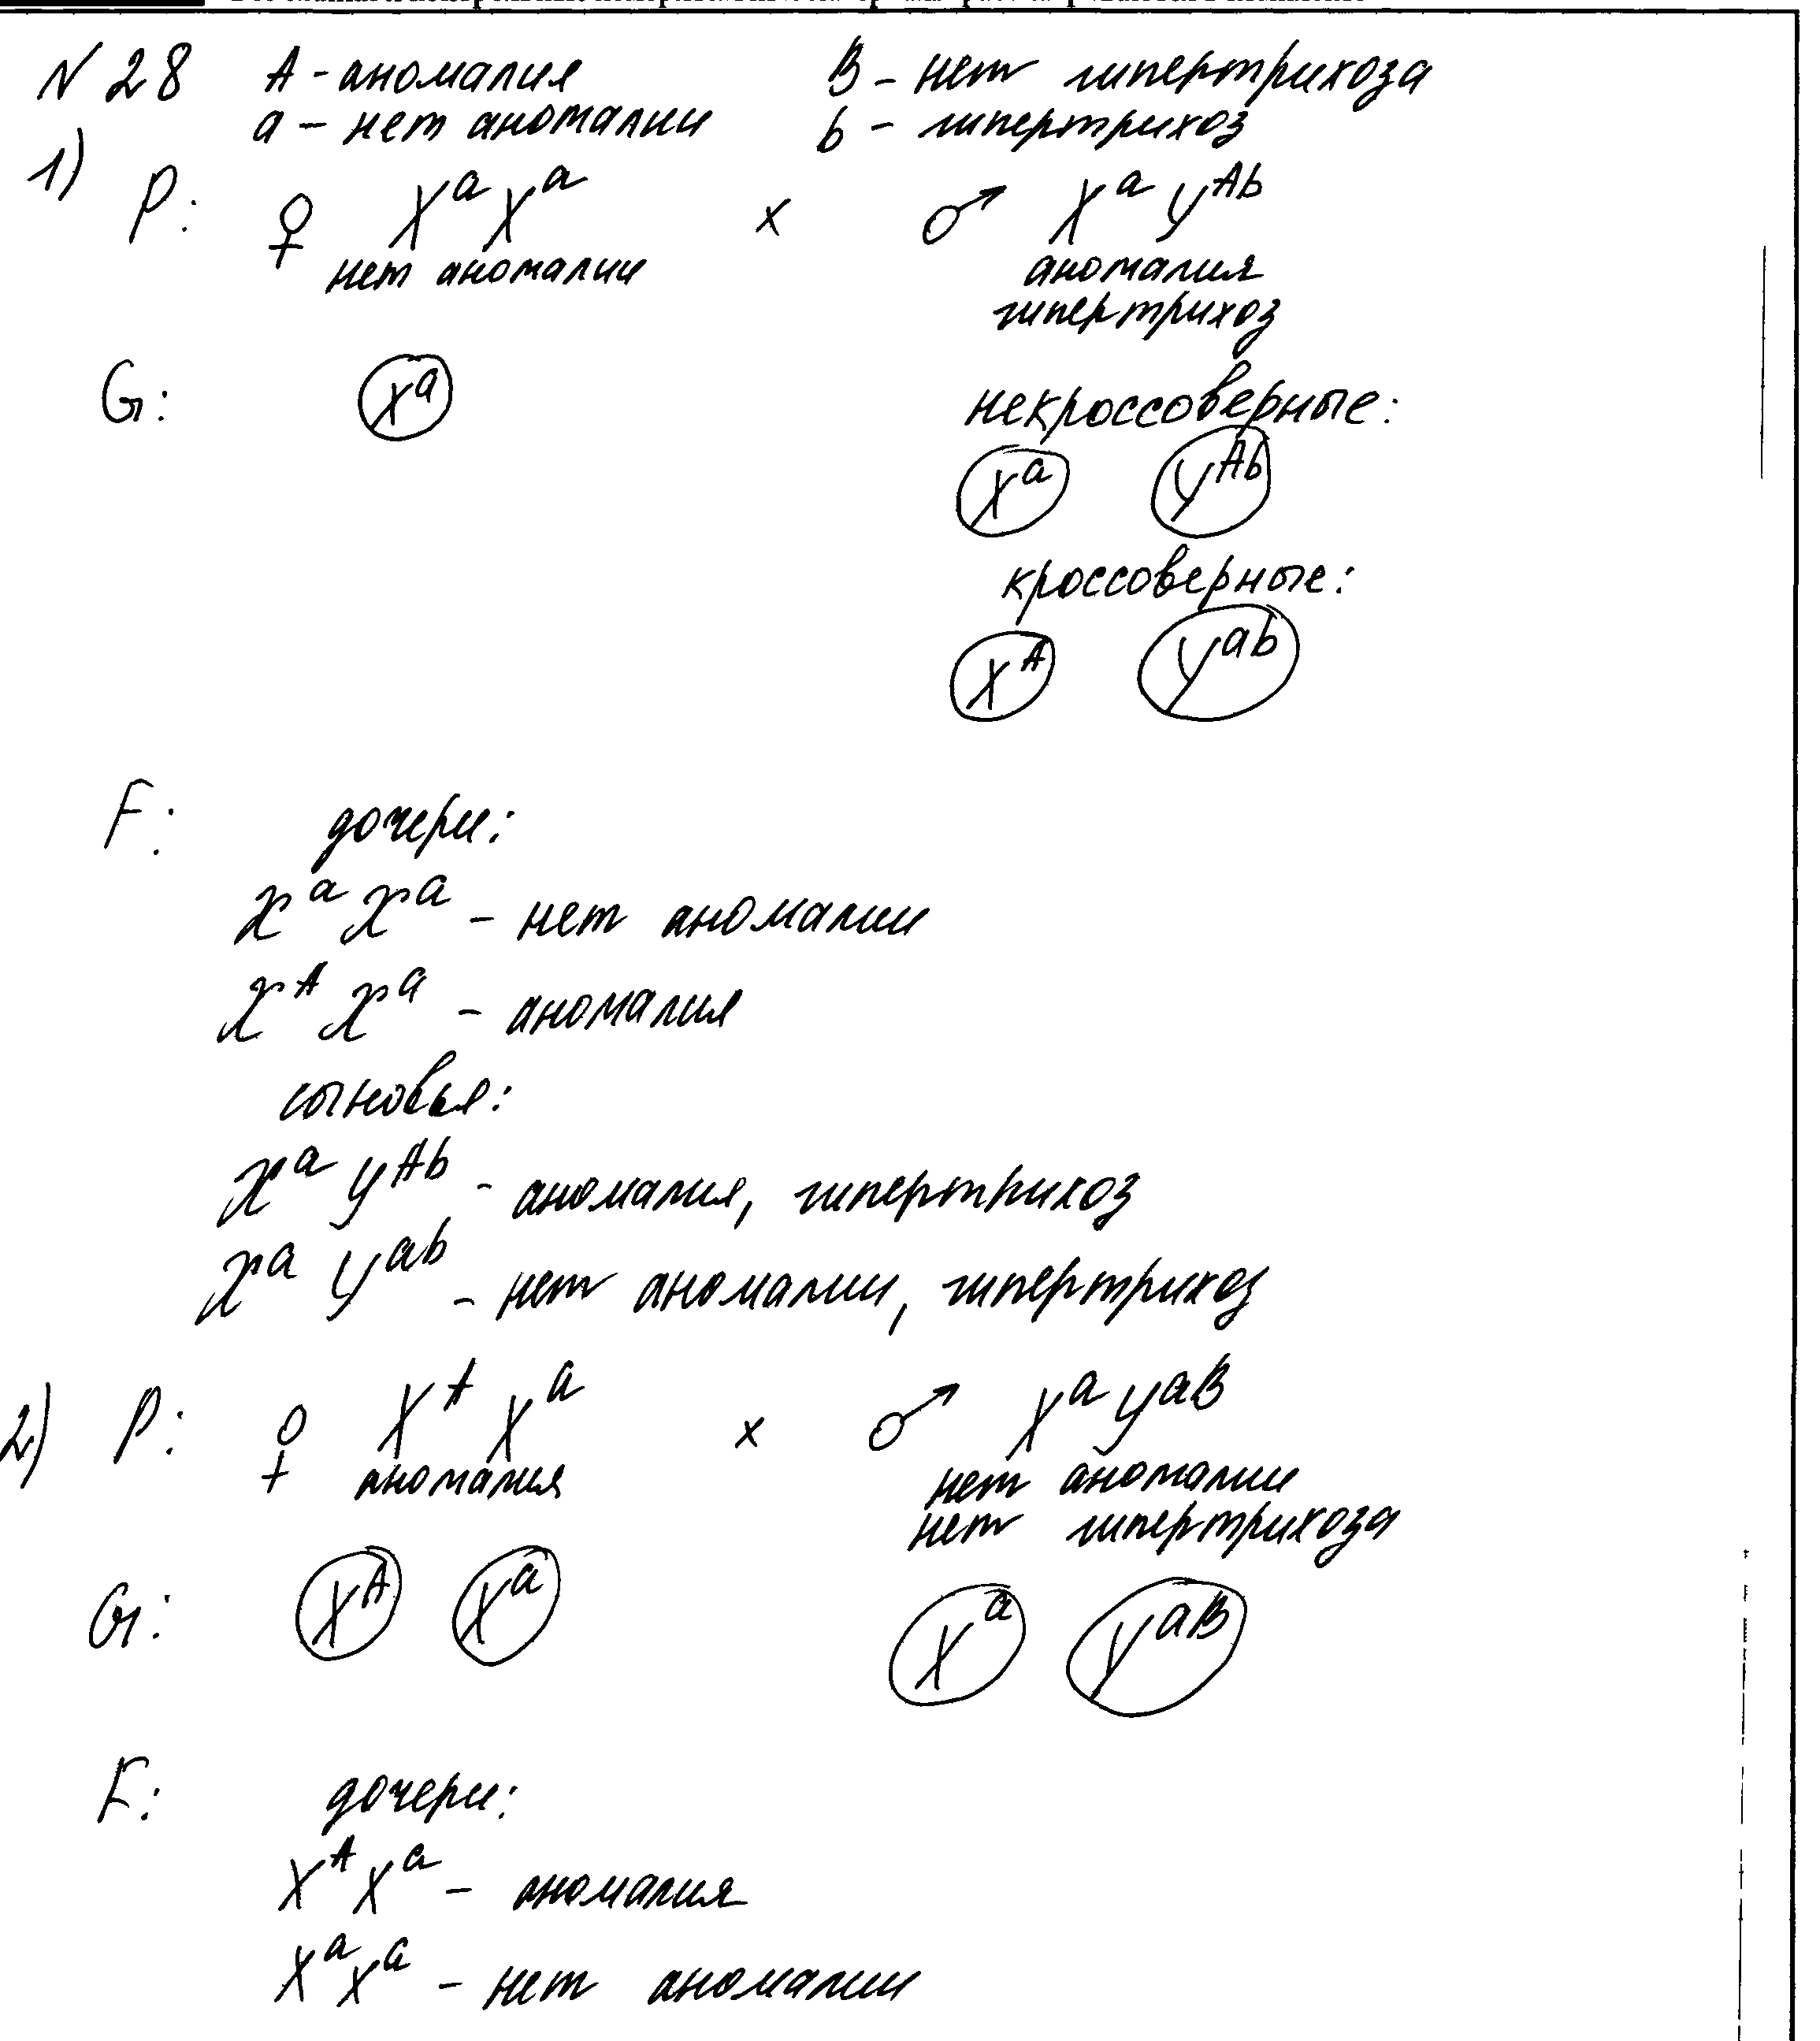 N 28 A - аномалия B - нет гипертрихоза
a - нет аномалии b - гипертрихоз
1) P: ♀ XᵃXᵃ x ♂ XᵃYᴬᵇ
нет аномалии аномалия
гипертрихоз
G: Xᵃ некроссоверные:
Xᵃ Yᴬᵇ
кроссоверные:
Xᴬ Yᵃᵇ
F: дочери:
XᵃXᵃ - нет аномалии
XᴬXᵃ - аномалия
сыновья:
XᵃYᴬᵇ - аномалия, гипертрихоз
XᵃYᵃᵇ - нет аномалии, гипертрихоз
2) P: ♀ XᴬXᵃ x ♂ XᵃYᵃᴮ
аномалия нет аномалии
нет гипертрихоза
G: Xᴬ Xᵃ Xᵃ Yᵃᴮ
F: дочери:
XᴬXᵃ - аномалия
XᵃXᵃ - нет аномалии